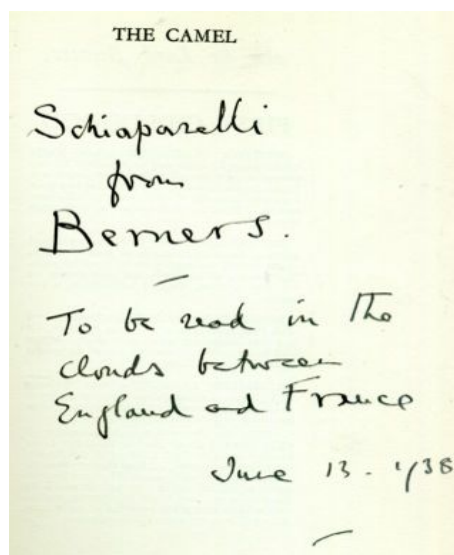 THE CAMEL
Schiaparelli
from
Berners.
To be read in the
clouds between
England and France
June 13 - 1938